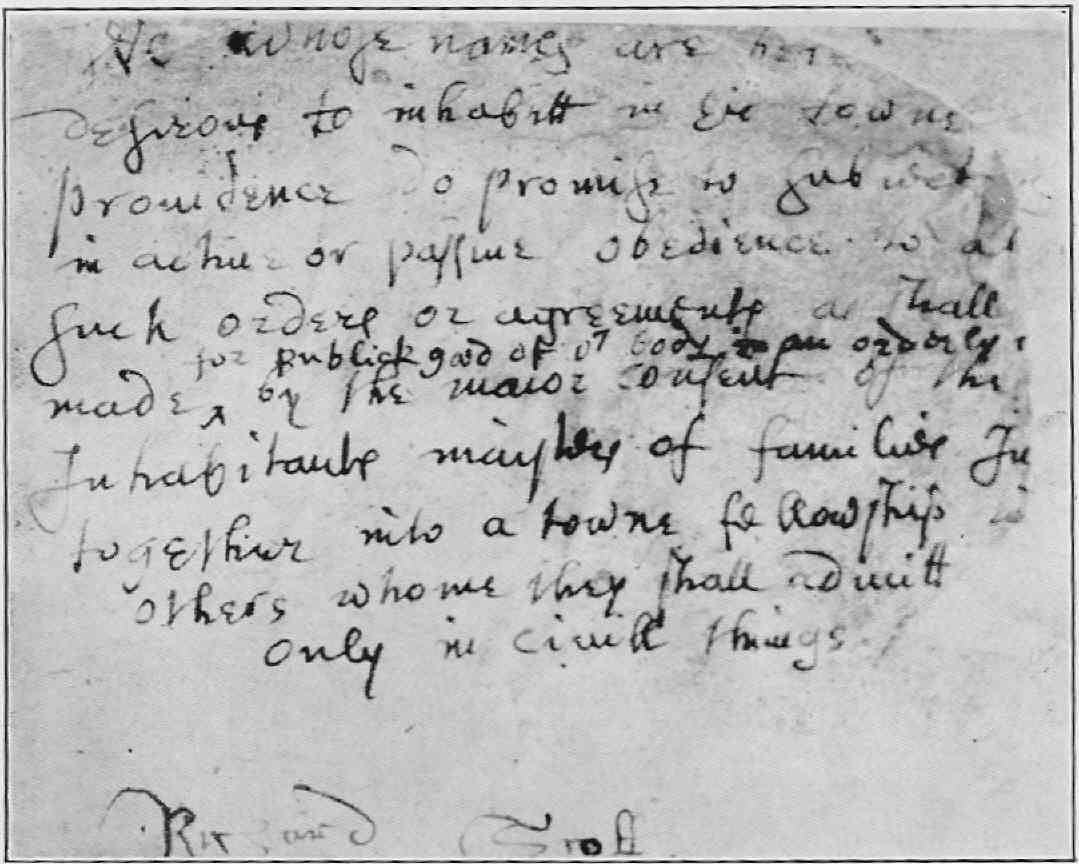 We whose names are her
desirous to inhabitt in the towne
prouidence do promise to subiect
in actiue or passiue obedience to al
such orders or agreements as shall
for publick good of or body in an orderly
made by the maior consent of the
Inhabitants maysters of families In
together into a towne fellowship
others whome they shall admitt
only in ciuill things
Richard Scott